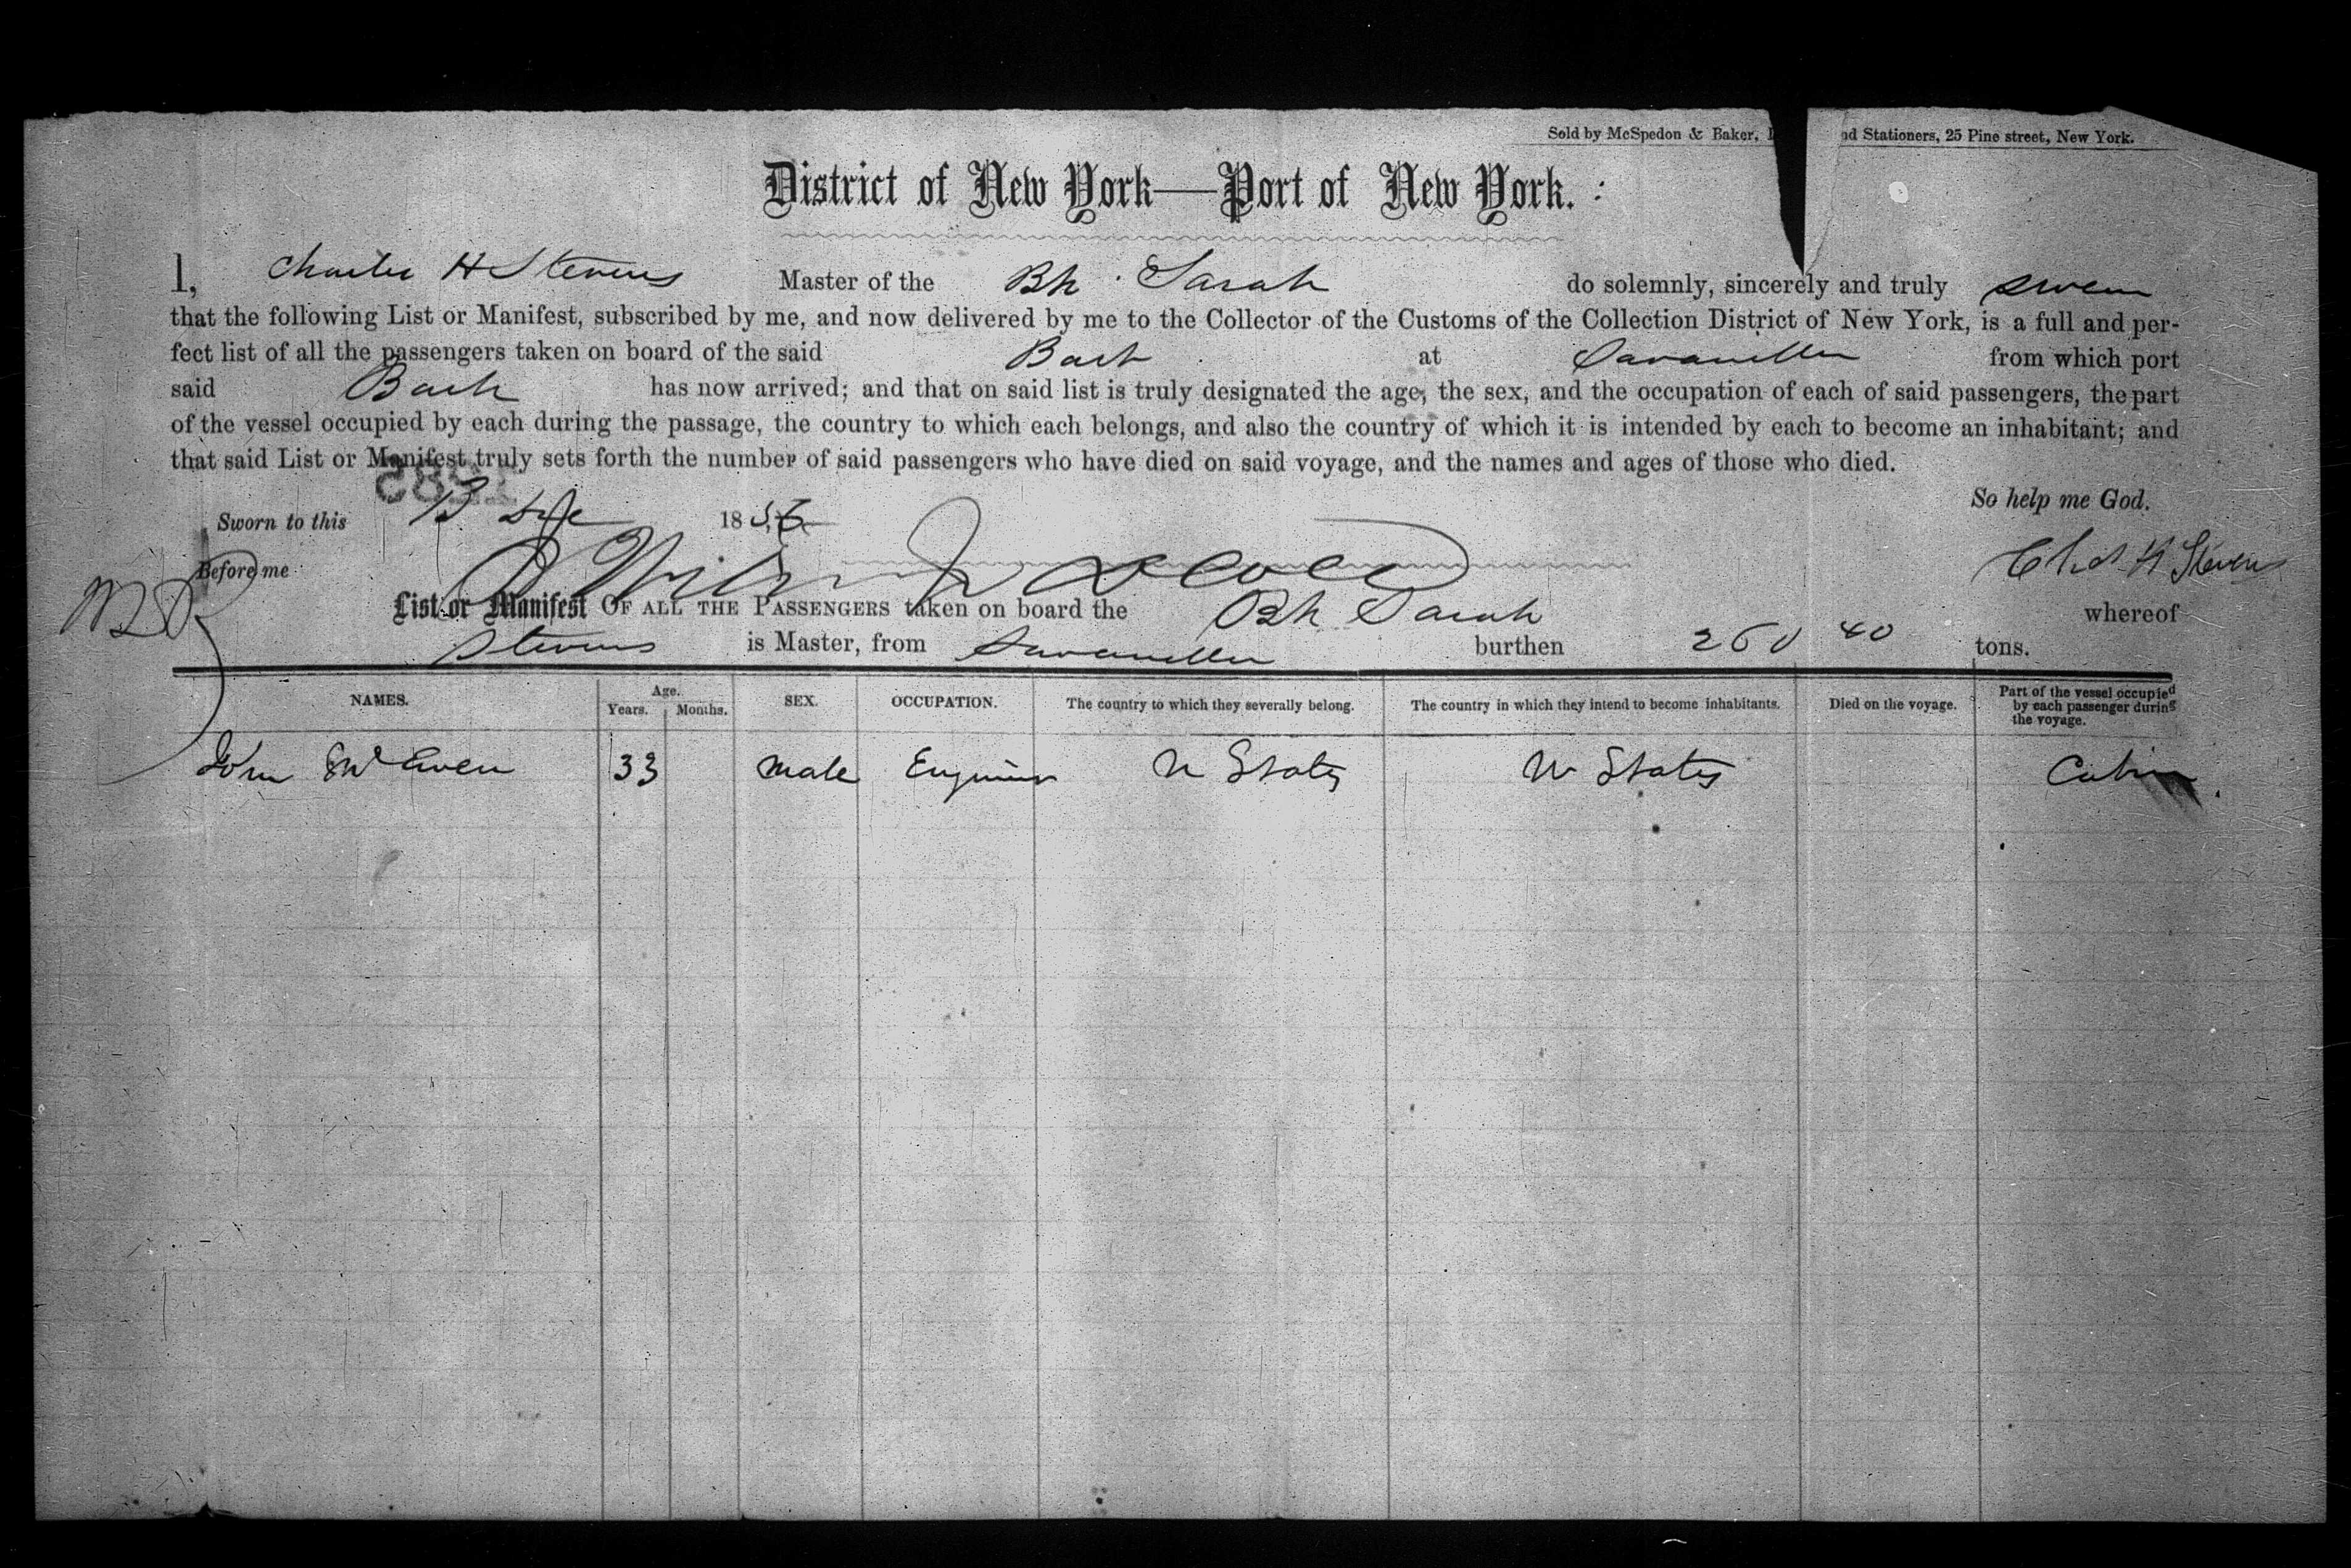 Sold by McSpedon & Baker, nd Stationers, 25 Pine street, New York.
District of New York—Port of New York.
I, Charles H Stevens Master of the Bk Sarah do solemnly, sincerely and truly swear
that the following List or Manifest, subscribed by me, and now delivered by me to the Collector of the Customs of the Collection District of New York, is a full and per-
fect list of all the passengers taken on board of the said Bark at Savanilla from which port
said Bark has now arrived; and that on said list is truly designated the age, the sex, and the occupation of each of said passengers, the part
of the vessel occupied by each during the passage, the country to which each belongs, and also the country of which it is intended by each to become an inhabitant; and
that said List or Manifest truly sets forth the number of said passengers who have died on said voyage, and the names and ages of those who died.
So help me God.
Sworn to this 13 1856
Before me Chas H Stevens
List or Manifest OF ALL THE PASSENGERS taken on board the Bk Sarah whereof
Stevens is Master, from Savanilla burthen 260 40 tons.
NAMES. Age. Years. Months. SEX. OCCUPATION. The country to which they severally belong. The country in which they intend to become inhabitants. Died on the voyage. Part of the vessel occupied by each passenger during the voyage.
John McEwen 33 Male Engineer U States U States Cabin